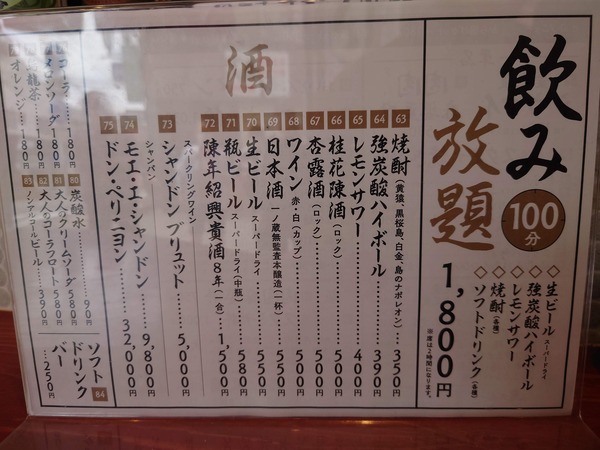 飲み放題
100分
1,800円
※席は2時間になります。
◇生ビール スーパードライ
◇強炭酸ハイボール
◇レモンサワー
◇焼酎(各種)
◇ソフトドリンク(各種)
酒
63 焼酎(黄猿、黒桜島、白金、島のナポレオン)…350円
64 強炭酸ハイボール…390円
65 レモンサワー…400円
66 桂花陳酒(ロック)…500円
67 杏露酒(ロック)…500円
68 ワイン 赤・白(カップ)…500円
69 日本酒 一ノ蔵無監査本醸造(一杯)…500円
70 生ビール スーパードライ…550円
71 瓶ビール スーパードライ(中瓶)…580円
72 陳年紹興貴酒8年(一合)…1,500円
スパークリングワイン
73 シャンドン ブリュット…5,000円
シャンパン
74 モエ・エ・シャンドン…9,800円
75 ドン・ペリニヨン…32,000円
コーラ…180円
メロンソーダ…180円
烏龍茶…180円
オレンジ…180円
80 炭酸水…90円
81 大人のクリームソーダ 580円
82 大人のコーラフロート 580円
83 ノンアルコールビール…390円
84 ソフトドリンクバー…250円